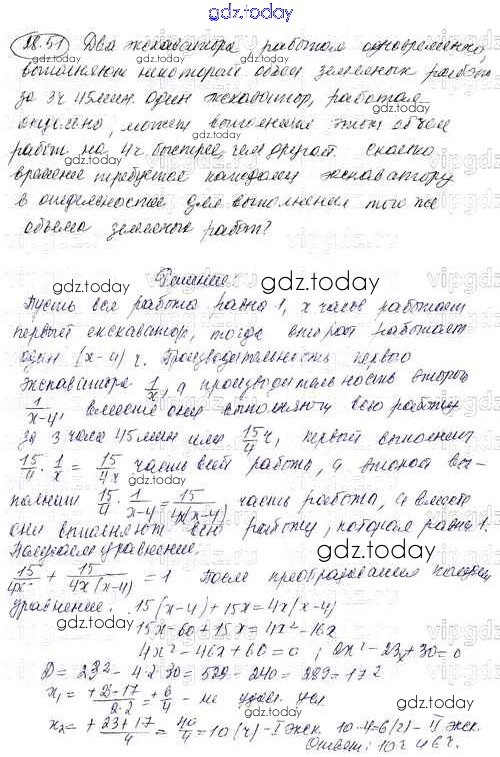 gdz.today
28.51 Два экскаватора, работая одновременно,
выполняют некоторый объем земляных работ
за 3ч 45мин. Один экскаватор, работая
отдельно, может выполнить этот объем
работ на 4ч быстрее, чем другой. Сколько
времени требуется каждому экскаватору
в отдельности для выполнения того же
объема земляных работ?
Решение:
gdz.today
Пусть вся работа равна 1, x часов работает
первый экскаватор, тогда второй работает
один (x-4) ч. Производительность первого
экскаватора 1/x, а производительность второго
1/(x-4), вместе они выполняют всю работу
за 3 часа 45 мин или 15/4 ч, первый выполнит
15/4 · 1/x = 15/4x часть всей работы, а второй вы-
полнит 15/4 · 1/(x-4) = 15/(4(x-4)) часть работы, а вместе
они выполняют всю работу, которая равна 1.
Получаем уравнение:
gdz.today
15/4x + 15/4x(x-4) = 1 После преобразования получим
уравнение: 15(x-4)+15x=4x(x-4)
15x-60+15x=4x²-16x
4x²-46x+60=0; 2x²-23x+30=0
D = 23²-4·2·30=529-240=289=17²
x₁ = +23-17/2·2 = +6/4 - не удовл. усл.
x₂ = +23+17/4 = 40/4 = 10 (ч) - I экск. 10-4=6(ч) - II экск.
Ответ: 10ч и 6ч.
gdz.today